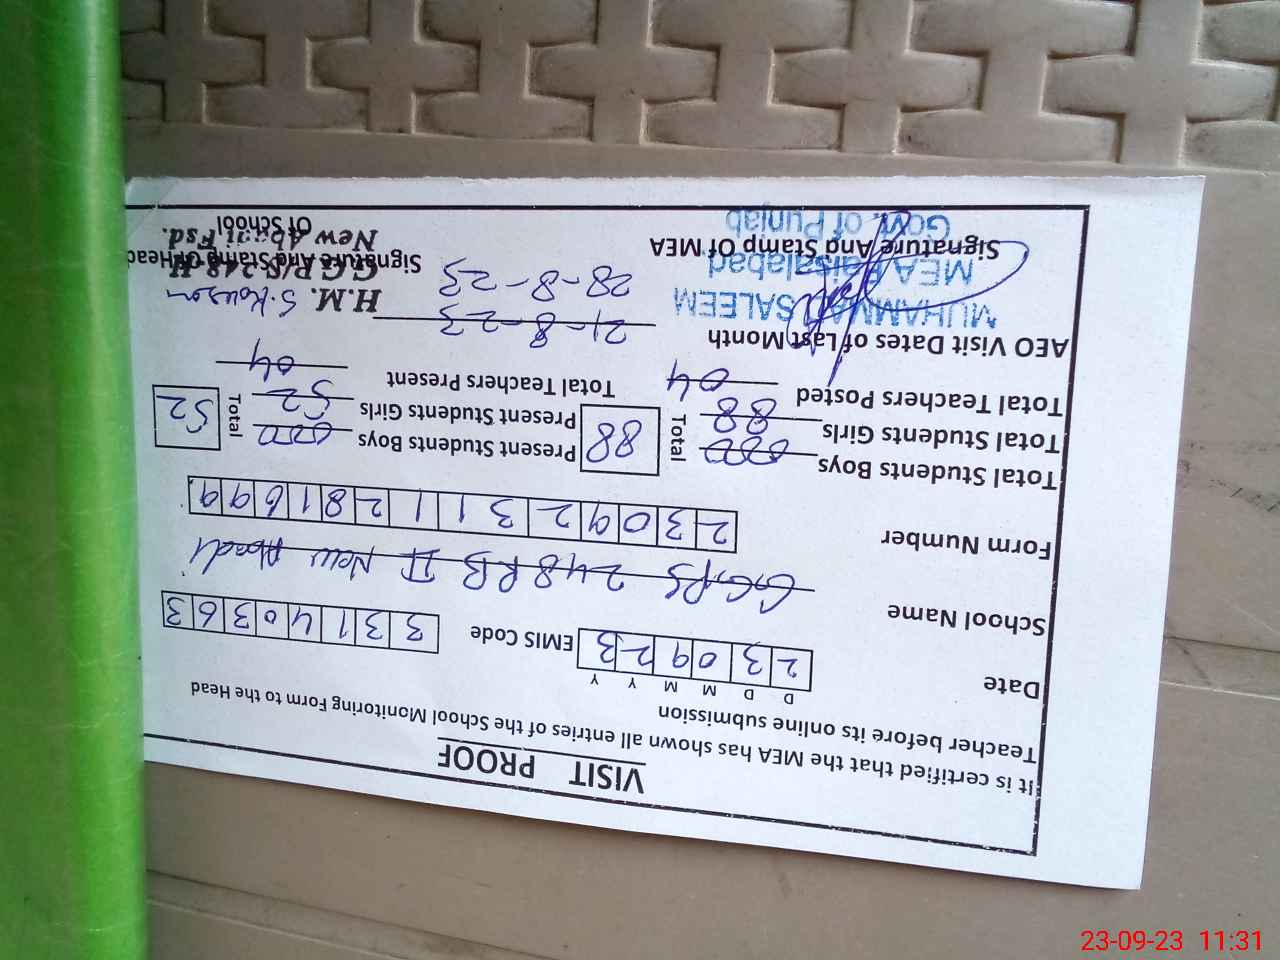 VISIT PROOF
It is certified that the MEA has shown all entries of the School Monitoring Form to the Head
Teacher before its online submission
D D M M Y Y
Date 230923 EMIS Code 33140363
School Name G.G.P.S 248 RB II New Abadi
Form Number 23092311281699
Total Students Boys 000 Total 88 Present Students Boys 000 Total 52
Total Students Girls 88 Present Students Girls 52
Total Teachers Posted 04 Total Teachers Present 04
AEO Visit Dates of Last Month 21-8-23
28-8-23
MUHAMMAD SALEEM
MEA Faisalabad
Govt. of Punjab
Signature And Stamp Of MEA
H.M. S. Kousar
G.G.P/S 248-
New Abadi Fsd.
Signature And Stamp Of Head
Of School
23-09-23 11:31